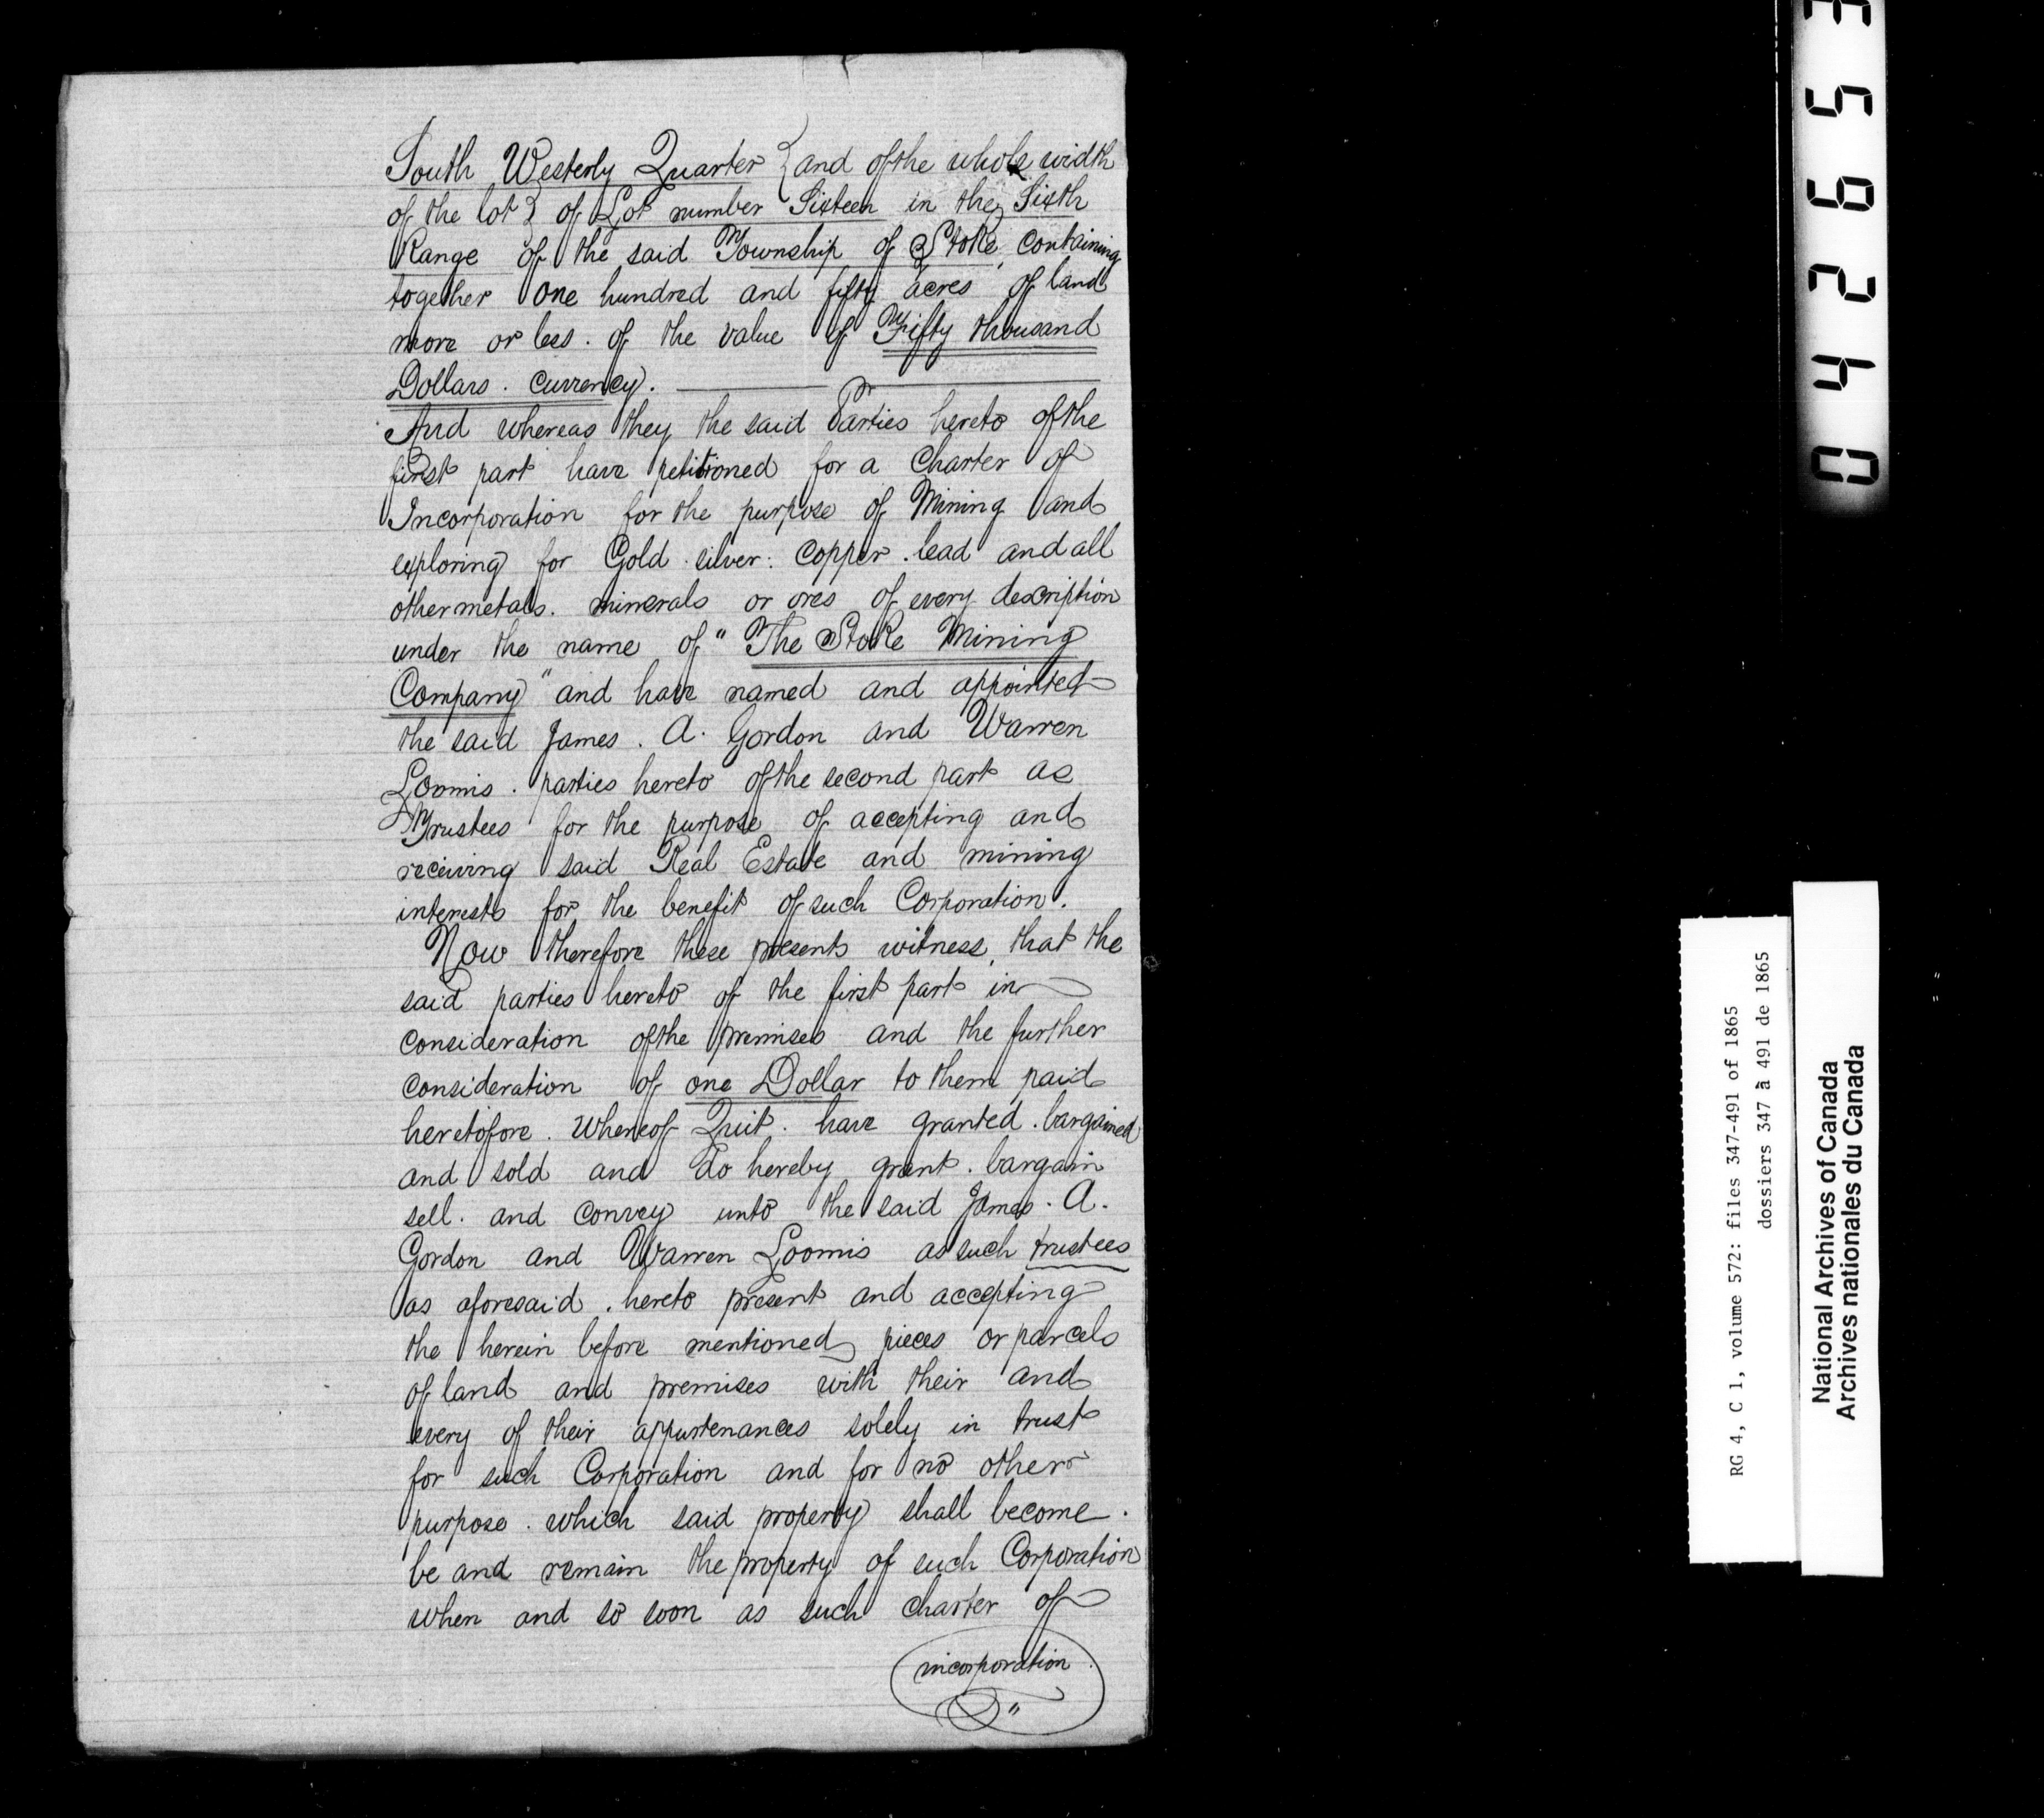 South Westerly Quarter { and of the whole width
of the lot } of Lot number Sixteen in the Sixth
Range of the said Township of Stoke, containing
together one hundred and fifty acres of land
more or less. of the value of Fifty thousand
Dollars. currency.
And whereas they the said Parties hereto of the
first part have petitioned for a Charter of
Incorporation for the purpose of Mining and
exploring for Gold. silver. Copper. lead and all
other metals. minerals or ores of every description
under the name of "The Stoke Mining
Company" and have named and appointed
the said James. A. Gordon and Warren
Loomis. parties hereto of the second part as
Trustees for the purpose of accepting and
receiving said Real Estate and mining
interests for the benefit of such Corporation.
Now therefore these presents witness, that the
said parties hereto of the first part in
consideration of the premises and the further
consideration of one Dollar to them paid
heretofore. Whereof Quit. have granted. bargained
and sold and do hereby grant. bargain
sell. and convey unto the said James. A.
Gordon and Warren Loomis as such trustees
as aforesaid. hereto present and accepting
the herein before mentioned pieces or parcels
of land and premises with their and
every of their appurtenances solely in trust
for such Corporation and for no other
purpose. which said property shall become.
be and remain the property of such Corporation
when and so soon as such charter of
incorporation
042653
RG 4, C 1, volume 572: files 347-491 of 1865
dossiers 347 à 491 de 1865
National Archives of Canada
Archives nationales du Canada